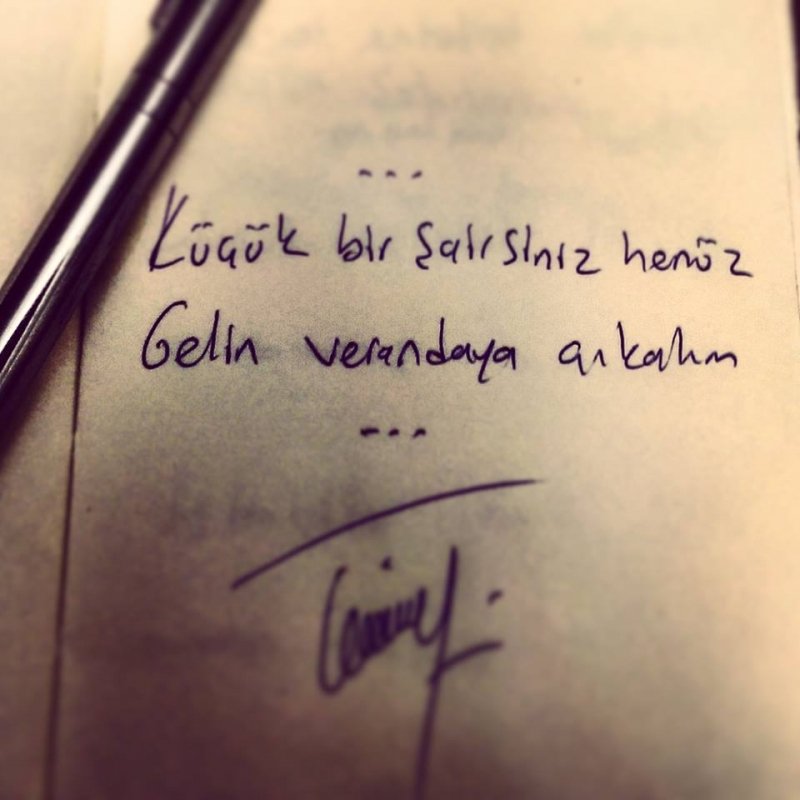 ...
Küçük bir şairsiniz henüz
Gelin verandaya çıkalım
...